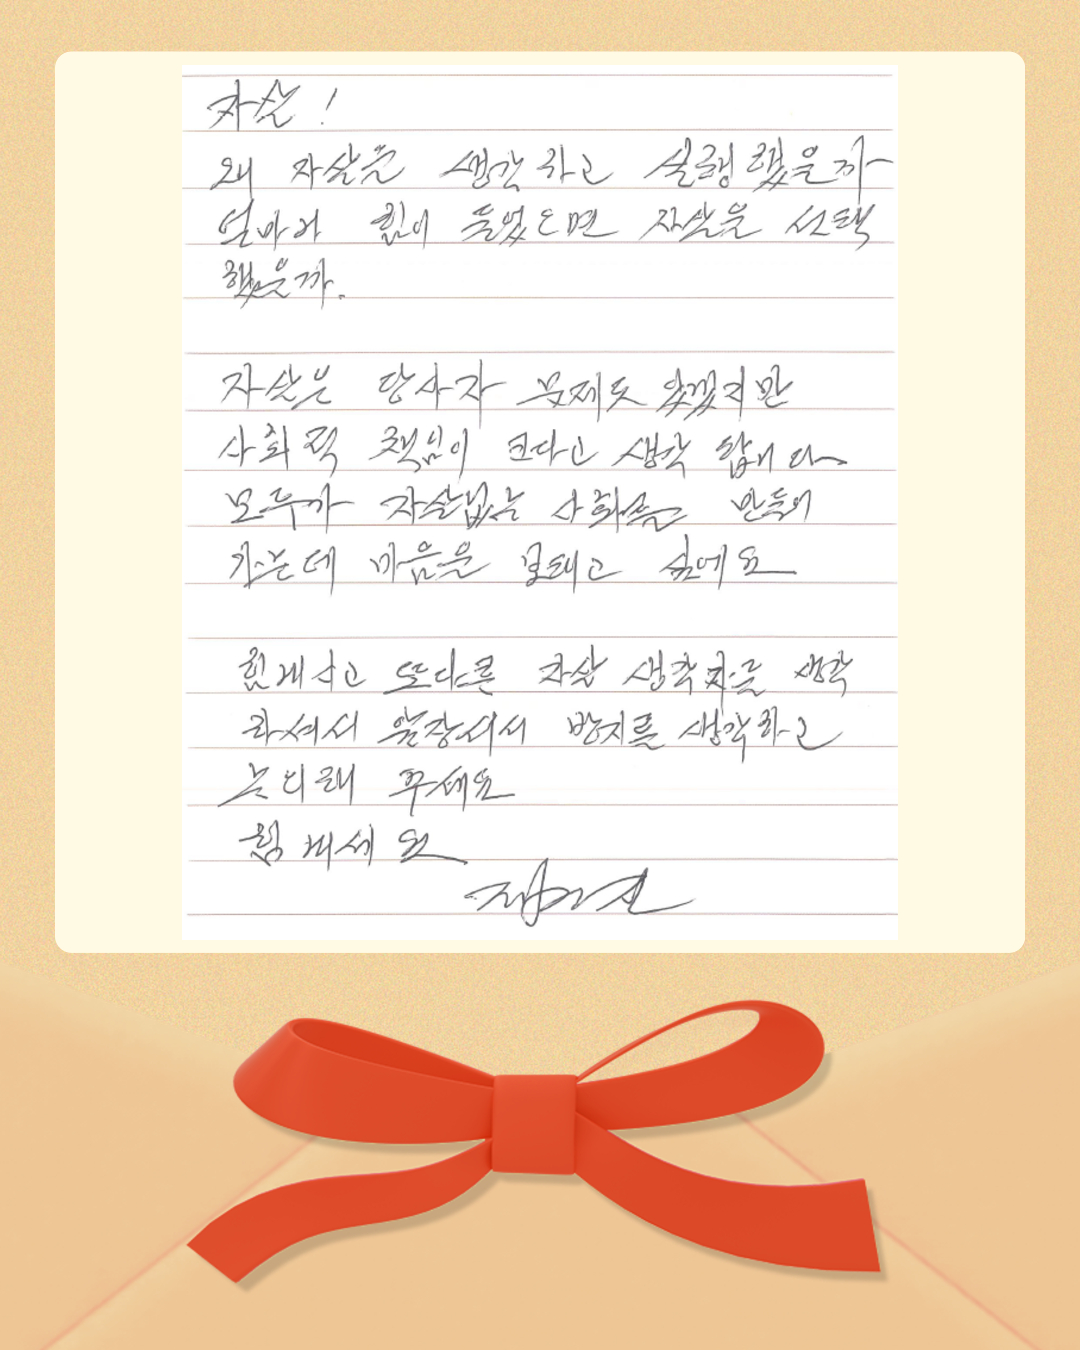 자살!
왜 자살을 생각하고 실행했을까
얼마나 힘이 들었으면 자살을 선택
했을까.
자살은 당사자 문제도 있겠지만
사회적 책임이 크다고 생각합니다
모두가 자살없는 사회를 만들어
가는데 마음을 보태고 싶에요
힘내시고 또다른 자살 생각자를 생각
하셔서 앞장서서 방지를 생각하고
노력해 주세요
힘내세요